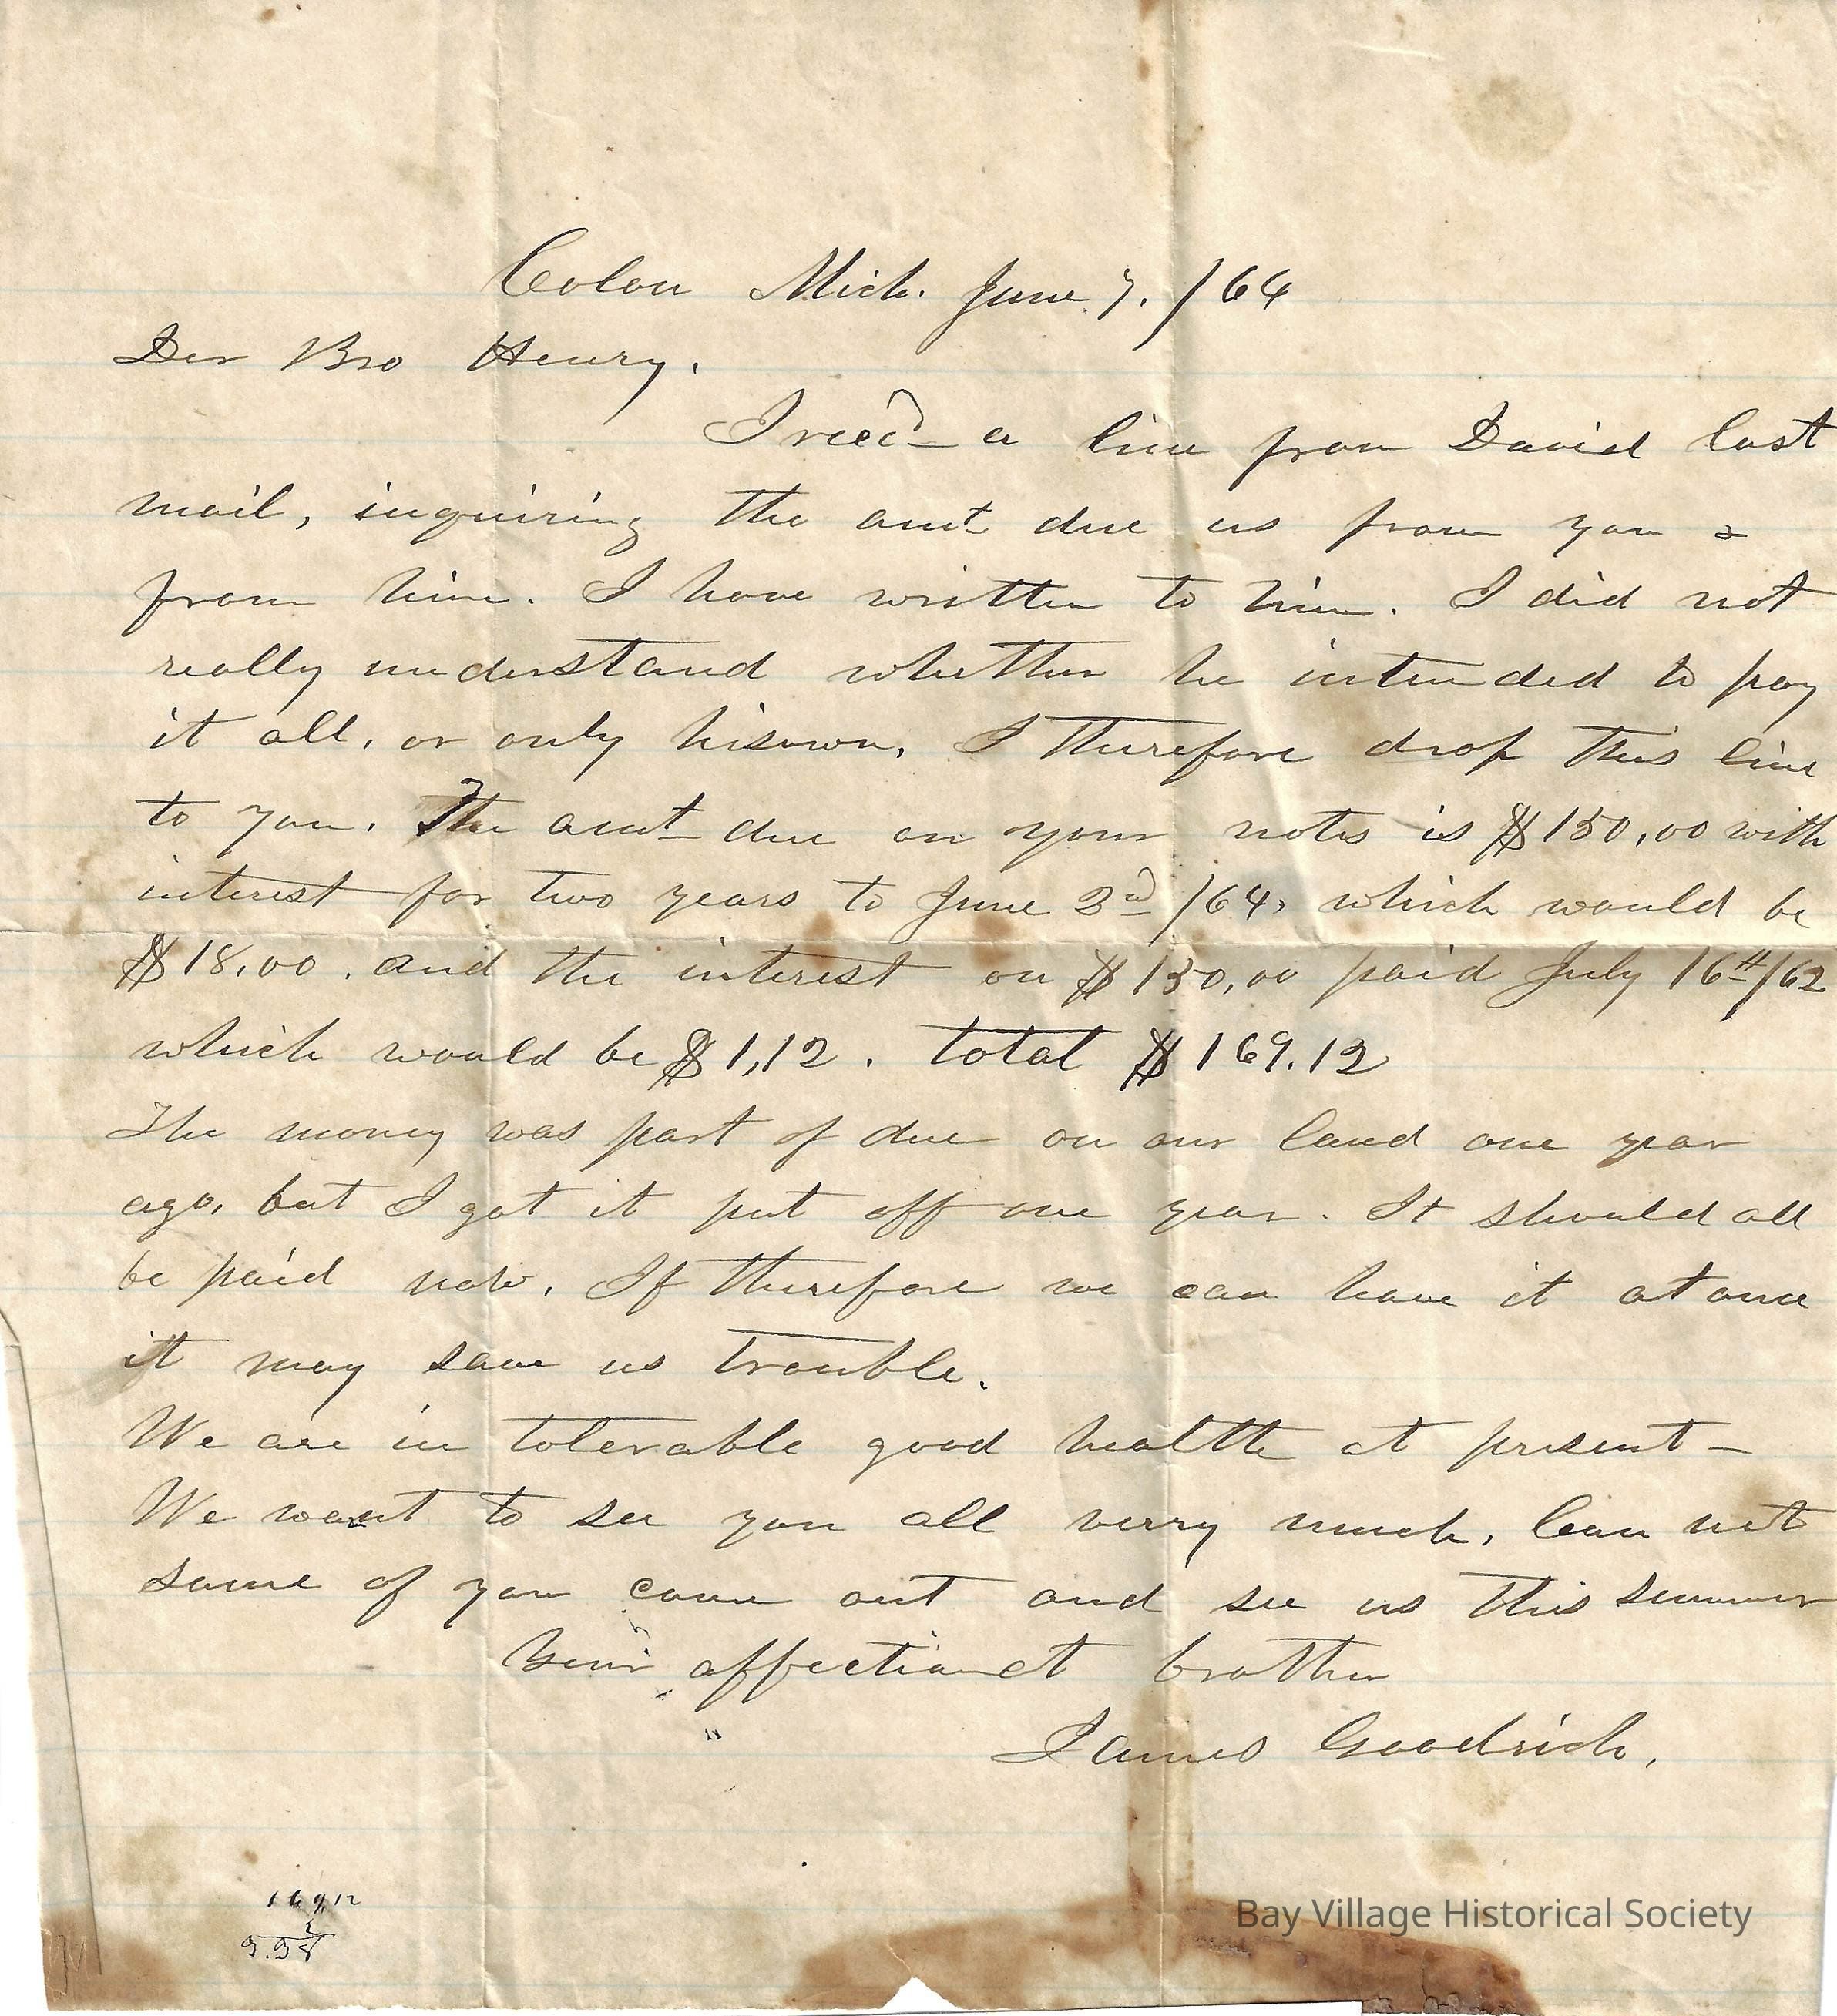 Colon Mich. June 7. /64
Der Bro Henry.
I recd a line from David last
mail, inquiring the amt due us from you &
from him. I have written to him. I did not
really understand whether he intended to pay
it all, or only his own, I therefore drop this line
to you. The amt due on your notes is $150,00 with
interest for two years to June 3d /64, which would be
$18,00. and the interest on $150,00 paid July 16th/62
which would be $1,12. total $169.12
The money was part of due on our land one year
ago, but I got it put off one year. It should all
be paid now. If therefore we can have it at once
it may save us trouble.
We are in tolerable good health at present –
We want to see you all verry much, Can not
some of you come out and see us this summer
Your affectionat brother
James Goodrich.
169,12
2
Bay Village Historical Society